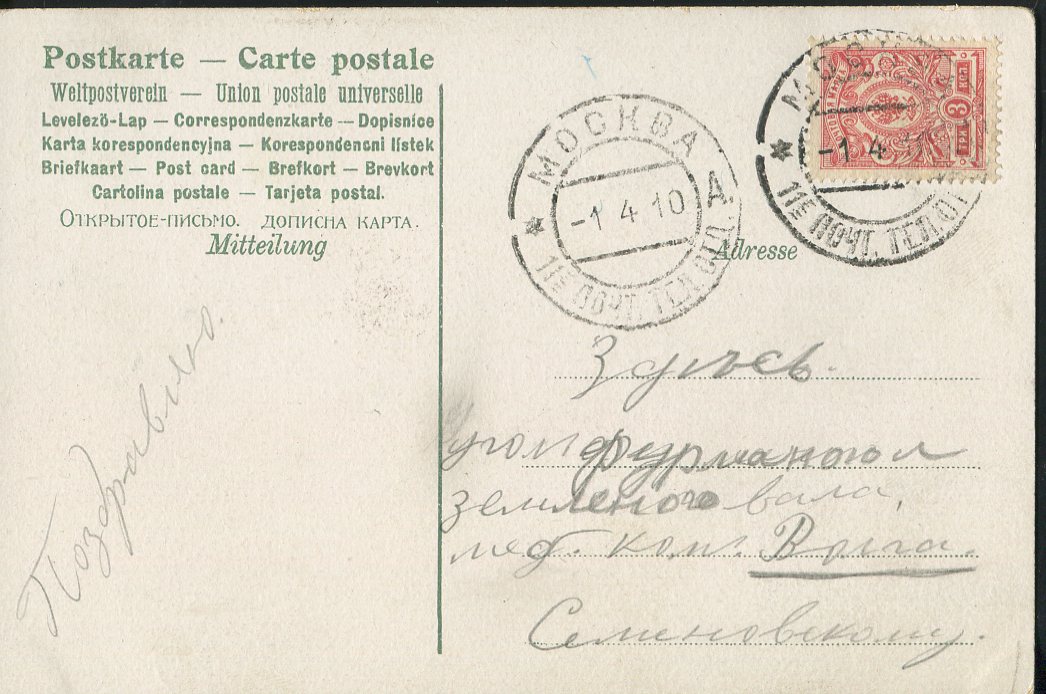 Postkarte — Carte postale
Weltpostverein — Union postale universelle
Levelező-Lap — Correspondenzkarte — Dopisnice
Karta korespondencyjna — Korespondencni listek
Briefkaart — Post card — Brefkort — Brevkort
Cartolina postale — Tarjeta postal.
ОТКРЫТОЕ-ПИСЬМО. ДОПИСНА КАРТА.
Mitteilung
Adresse
МОСКВА А.
-1 4 10
11Е ПОЧТ. ТЕЛ. ОТД.
МОСК
-1 4
11Е ПОЧТ. ТЕЛ. ОТ
3 КОП
ТРИ
Поздравляю.
Здѣсь.
Уголъ фурманаго и
земленого вала,
мед. ком. Волга.
Семеновскому.